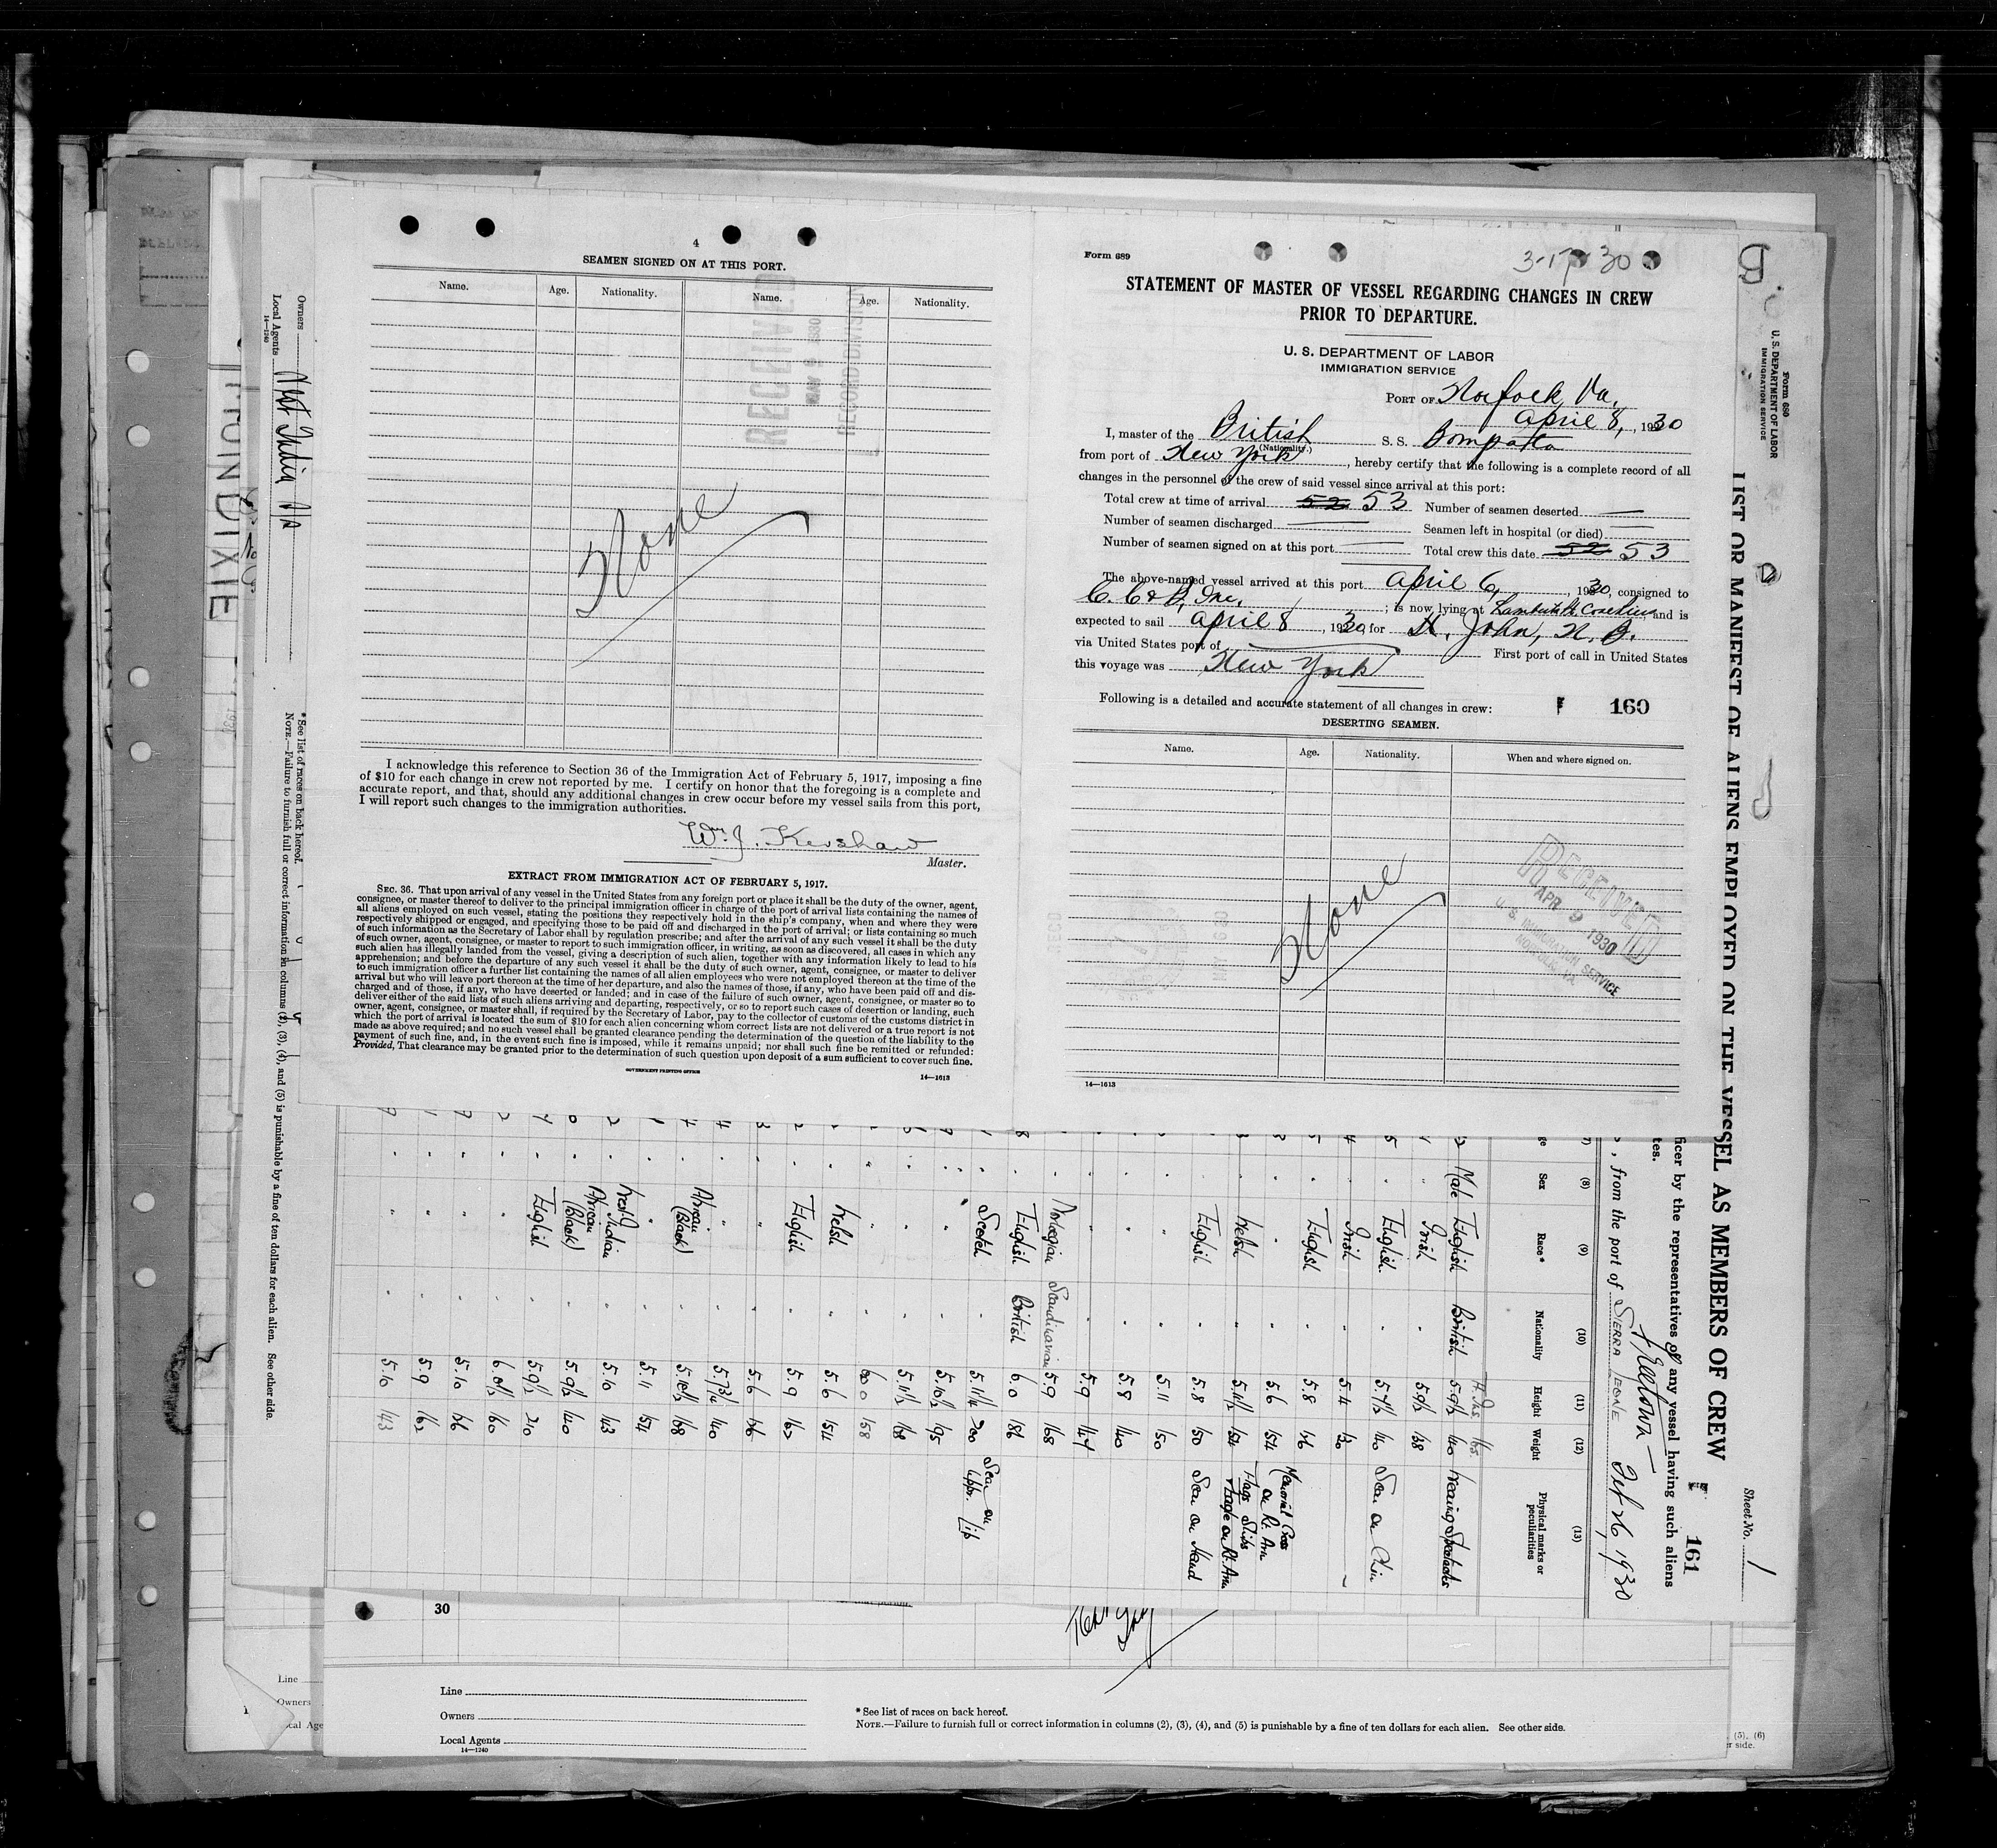 4
SEAMEN SIGNED ON AT THIS PORT.
Name. Age. Nationality. Name. Age. Nationality.
None
I acknowledge this reference to Section 36 of the Immigration Act of February 5, 1917, imposing a fine
of $10 for each change in crew not reported by me. I certify on honor that the foregoing is a complete and
accurate report, and that, should any additional changes in crew occur before my vessel sails from this port,
I will report such changes to the immigration authorities.
Wm J. Kershaw
Master.
EXTRACT FROM IMMIGRATION ACT OF FEBRUARY 5, 1917.
SEC. 36. That upon arrival of any vessel in the United States from any foreign port or place it shall be the duty of the owner, agent,
consignee, or master thereof to deliver to the principal immigration officer in charge of the port of arrival lists containing the names of
all aliens employed on such vessel, stating the positions they respectively hold in the ship's company, when and where they were
respectively shipped or engaged, and specifying those to be paid off and discharged in the port of arrival; or lists containing so much
of such information as the Secretary of Labor shall by regulation prescribe; and after the arrival of any such vessel it shall be the duty
of such owner, agent, consignee, or master to report to such immigration officer, in writing, as soon as discovered, all cases in which any
such alien has illegally landed from the vessel, giving a description of such alien, together with any information likely to lead to his
apprehension; and before the departure of any such vessel it shall be the duty of such owner, agent, consignee, or master to deliver
to such immigration officer a further list containing the names of all alien employees who were not employed thereon at the time of the
arrival but who will leave port thereon at the time of her departure, and also the names of those, if any, who have been paid off and dis-
charged and of those, if any, who have deserted or landed; and in case of the failure of such owner, agent, consignee, or master so to
deliver either of the said lists of such aliens arriving and departing, respectively, or so to report such cases of desertion or landing, such
owner, agent, consignee, or master shall, if required by the Secretary of Labor, pay to the collector of customs of the customs district in
which the port of arrival is located the sum of $10 for each alien concerning whom correct lists are not delivered or a true report is not
made as above required; and no such vessel shall be granted clearance pending the determination of the question of the liability to the
payment of such fine, and, in the event such fine is imposed, while it remains unpaid; nor shall such fine be remitted or refunded:
Provided, That clearance may be granted prior to the determination of such question upon deposit of a sum sufficient to cover such fine.
GOVERNMENT PRINTING OFFICE
14—1613
Form 689
3-17-30
STATEMENT OF MASTER OF VESSEL REGARDING CHANGES IN CREW
PRIOR TO DEPARTURE.
U. S. DEPARTMENT OF LABOR
IMMIGRATION SERVICE
PORT OF Norfolk, Va.
April 8, , 1930
I, master of the British S. S. Bompata
(Nationality.)
from port of New York , hereby certify that the following is a complete record of all
changes in the personnel of the crew of said vessel since arrival at this port:
Total crew at time of arrival 52 53 Number of seamen deserted
Number of seamen discharged Seamen left in hospital (or died)
Number of seamen signed on at this port Total crew this date 52 53
The above-named vessel arrived at this port April 6, , 1930, consigned to
Inc. ; is now lying at and is
expected to sail April 8 , 1930, for St. John, N. B.
via United States port of First port of call in United States
this voyage was New York
Following is a detailed and accurate statement of all changes in crew: 160
DESERTING SEAMEN.
Name. Age. Nationality. When and where signed on.
None
RECEIVED
APR 9 1930
U. S. IMMIGRATION SERVICE
NORFOLK, VA.
14—1613
Form 680
U. S. DEPARTMENT OF LABOR
IMMIGRATION SERVICE
LIST OR MANIFEST OF ALIENS EMPLOYED ON THE VESSEL AS MEMBERS OF CREW
Sheet No. 1
161
ficer by the representatives of any vessel having such aliens
tes.
Freetown
, from the port of SIERRA LEONE Feb 26, 1930
(8) (9) (10) (11) (12) (13)
Sex Race* Nationality Height Weight Physical marks or
peculiarities
Ft. Ins. lbs.
Male English British 5.9½ 140 Wearing Spectacles
Irish 5.9½ 138
English 5.7½ 140 Scar on Chin
Irish 5.4 130
English 5.8 126
5.6 154 Memorial Cross
on Rt. Arm
Welsh 5.11½ 154 Flags Ships
Eagle on Rt. Arm
English 5.8 150 Scar on Hand
5.11 150
5.8 140
5.9 147
Norwegian Scandinavian 5.9 168
English British 6.0 186
Scotch 5.11¼ 200 Scar on
Upr. Lip
5.10½ 195
5.11½ 168
6.0 158
Welsh 5.6 154
English 5.9 162
5.6 126
5.7¾ 140
African
(Black) 5.10½ 168
5.11 154
West Indian 5.10 143
African
(Black) 5.9½ 140
English 5.9½ 210
6.0½ 160
5.10 126
5.9 162
5.10 143
Owners
Local Agents West India
14—1240
* See list of races on back hereof.
NOTE.—Failure to furnish full or correct information in columns (2), (3), (4), and (5) is punishable by a fine of ten dollars for each alien. See other side.
30
Line
Owners
Local Agents
14—1240
* See list of races on back hereof.
NOTE.—Failure to furnish full or correct information in columns (2), (3), (4), and (5) is punishable by a fine of ten dollars for each alien. See other side.
Line
Owners
(5), (6)